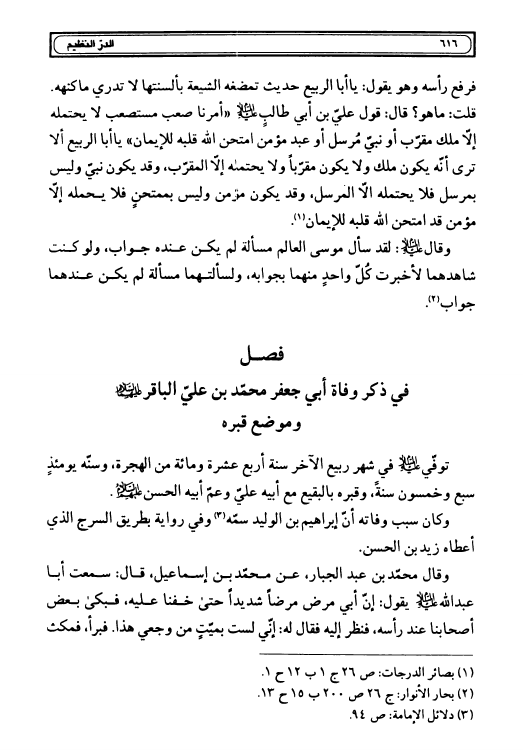 ٦١٦
الدرّ النظيم
فرفع رأسه وهو يقول: ياأبا الربيع حديث تمضغه الشيعة بألسنتها لا تدري ماكنهه.
قلت: ماهو؟ قال: قول عليّ بن أبي طالب عليه السلام «أمرنا صعب مستصعب لا يحتمله
إلّا ملك مقرّب أو نبيّ مُرسل أو عبد مؤمن امتحن الله قلبه للإيمان» ياأبا الربيع ألا
ترى أنّه يكون ملك ولا يكون مقرّباً ولا يحتمله إلّا المقرّب، وقد يكون نبيّ وليس
بمرسل فلا يحتمله الّا المرسل، وقد يكون مؤمن وليس بممتحنٍ فلا يـحمله إلّا
مؤمن قد امتحن الله قلبه للإيمان(١).
وقال عليه السلام: لقد سأل موسى العالم مسألة لم يكـن عنـده جـواب، ولو كـنت
شاهدهما لأخبرت كُلّ واحدٍ منهما بجوابه، ولسألتـهما مسألة لم يكـن عـندهما
جواب(٢).
فصـل
في ذكر وفاة أبي جعفر محمّد بن عليّ الباقر عليهما السلام
وموضع قبره
توفّي عليه السلام في شهر ربيع الآخر سنة أربع عشرة ومائة من الهجرة، وسنّه يومئذٍ
سبع وخمسون سنةً، وقبره بالبقيع مع أبيه عليّ وعمّ أبيه الحسن عليهم السلام.
وكان سبب وفاته أنّ إبراهيم بن الوليد سمّه(٣) وفي رواية بطريق السرج الذي
أعطاه زيد بن الحسن.
وقال محمّد بن عبد الجبار، عـن مـحمّد بـن إسـماعيل، قـال: سـمعت أبـا
عبدالله عليه السلام يقول: إنّ أبي مرض مرضاً شديداً حتىٰ خـفنا عـليه، فـبكىٰ بـعض
أصحابنا عند رأسه، فنظر إليه فقال له: إنّي لست بميّتٍ من وجعي هذا. فبرأ، فمكث
(١) بصائر الدرجات: ص ٢٦ ج ١ ب ١٢ ح ١.
(٢) بحار الأنوار: ج ٢٦ ص ٢٠٠ ب ١٥ ح ١٣.
(٣) دلائل الإمامة: ص ٩٤.